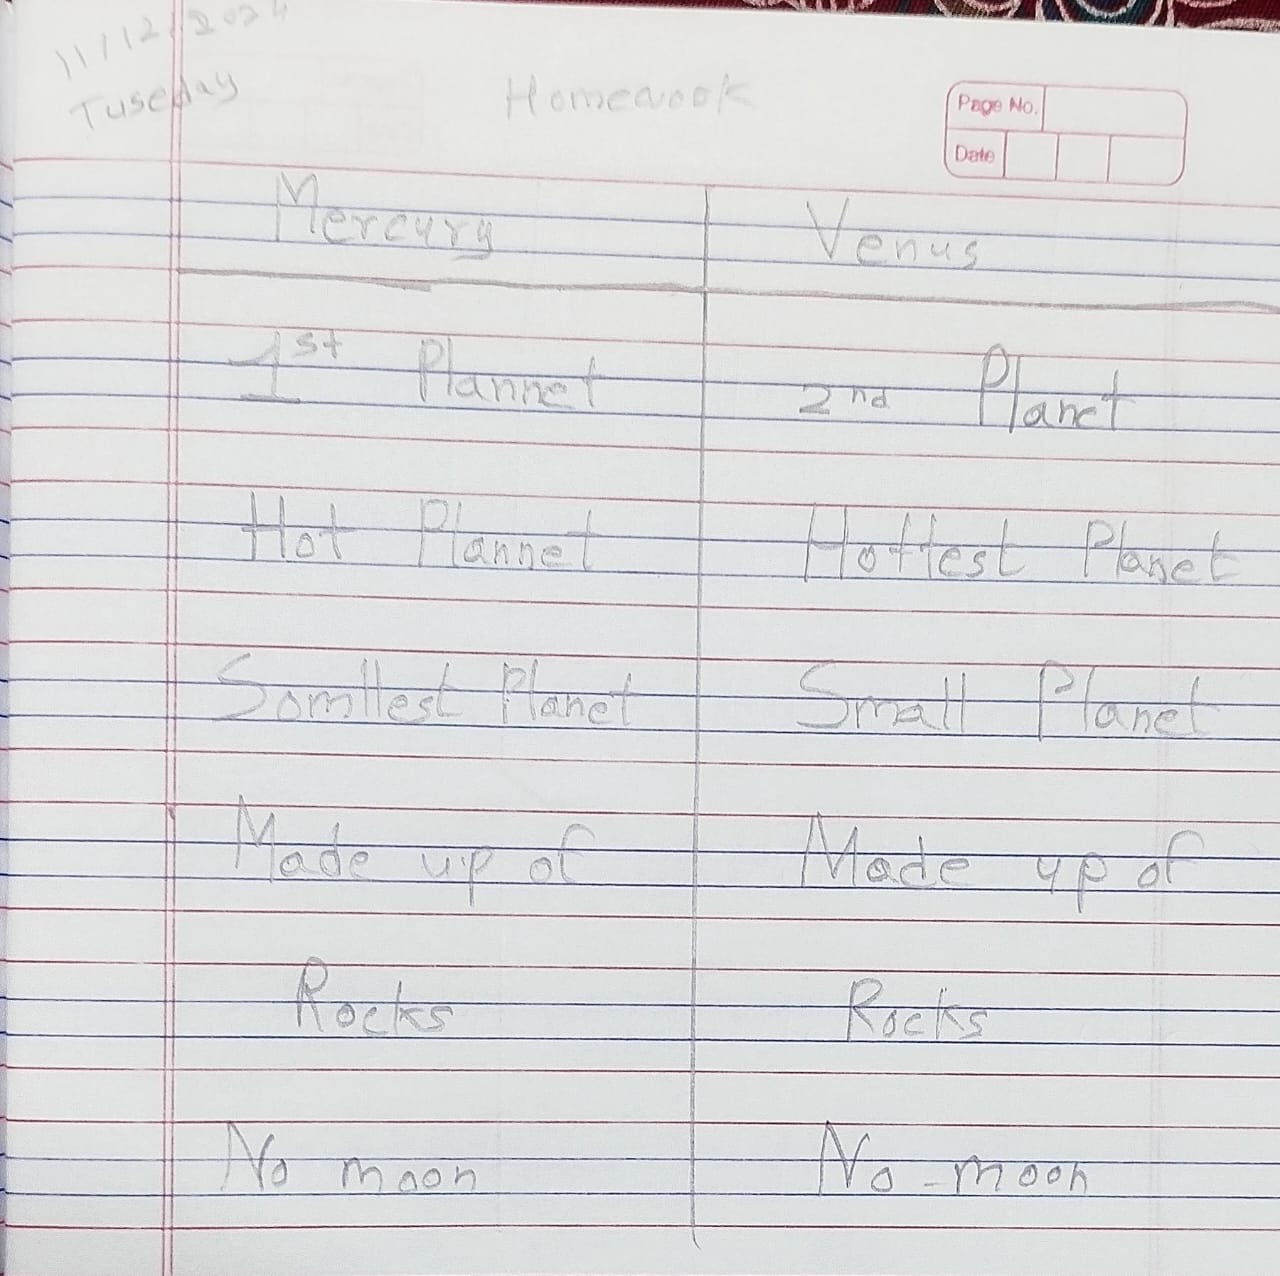 11/12/2024
Tuseday
Homewook
Page No.
Date
Mercury Venus
1st Plannet 2nd Planet
Hot Plannet Hottest Planet
Somllest Planet Small Planet
Made up of Made up of
Rocks Rocks
No moon No moon